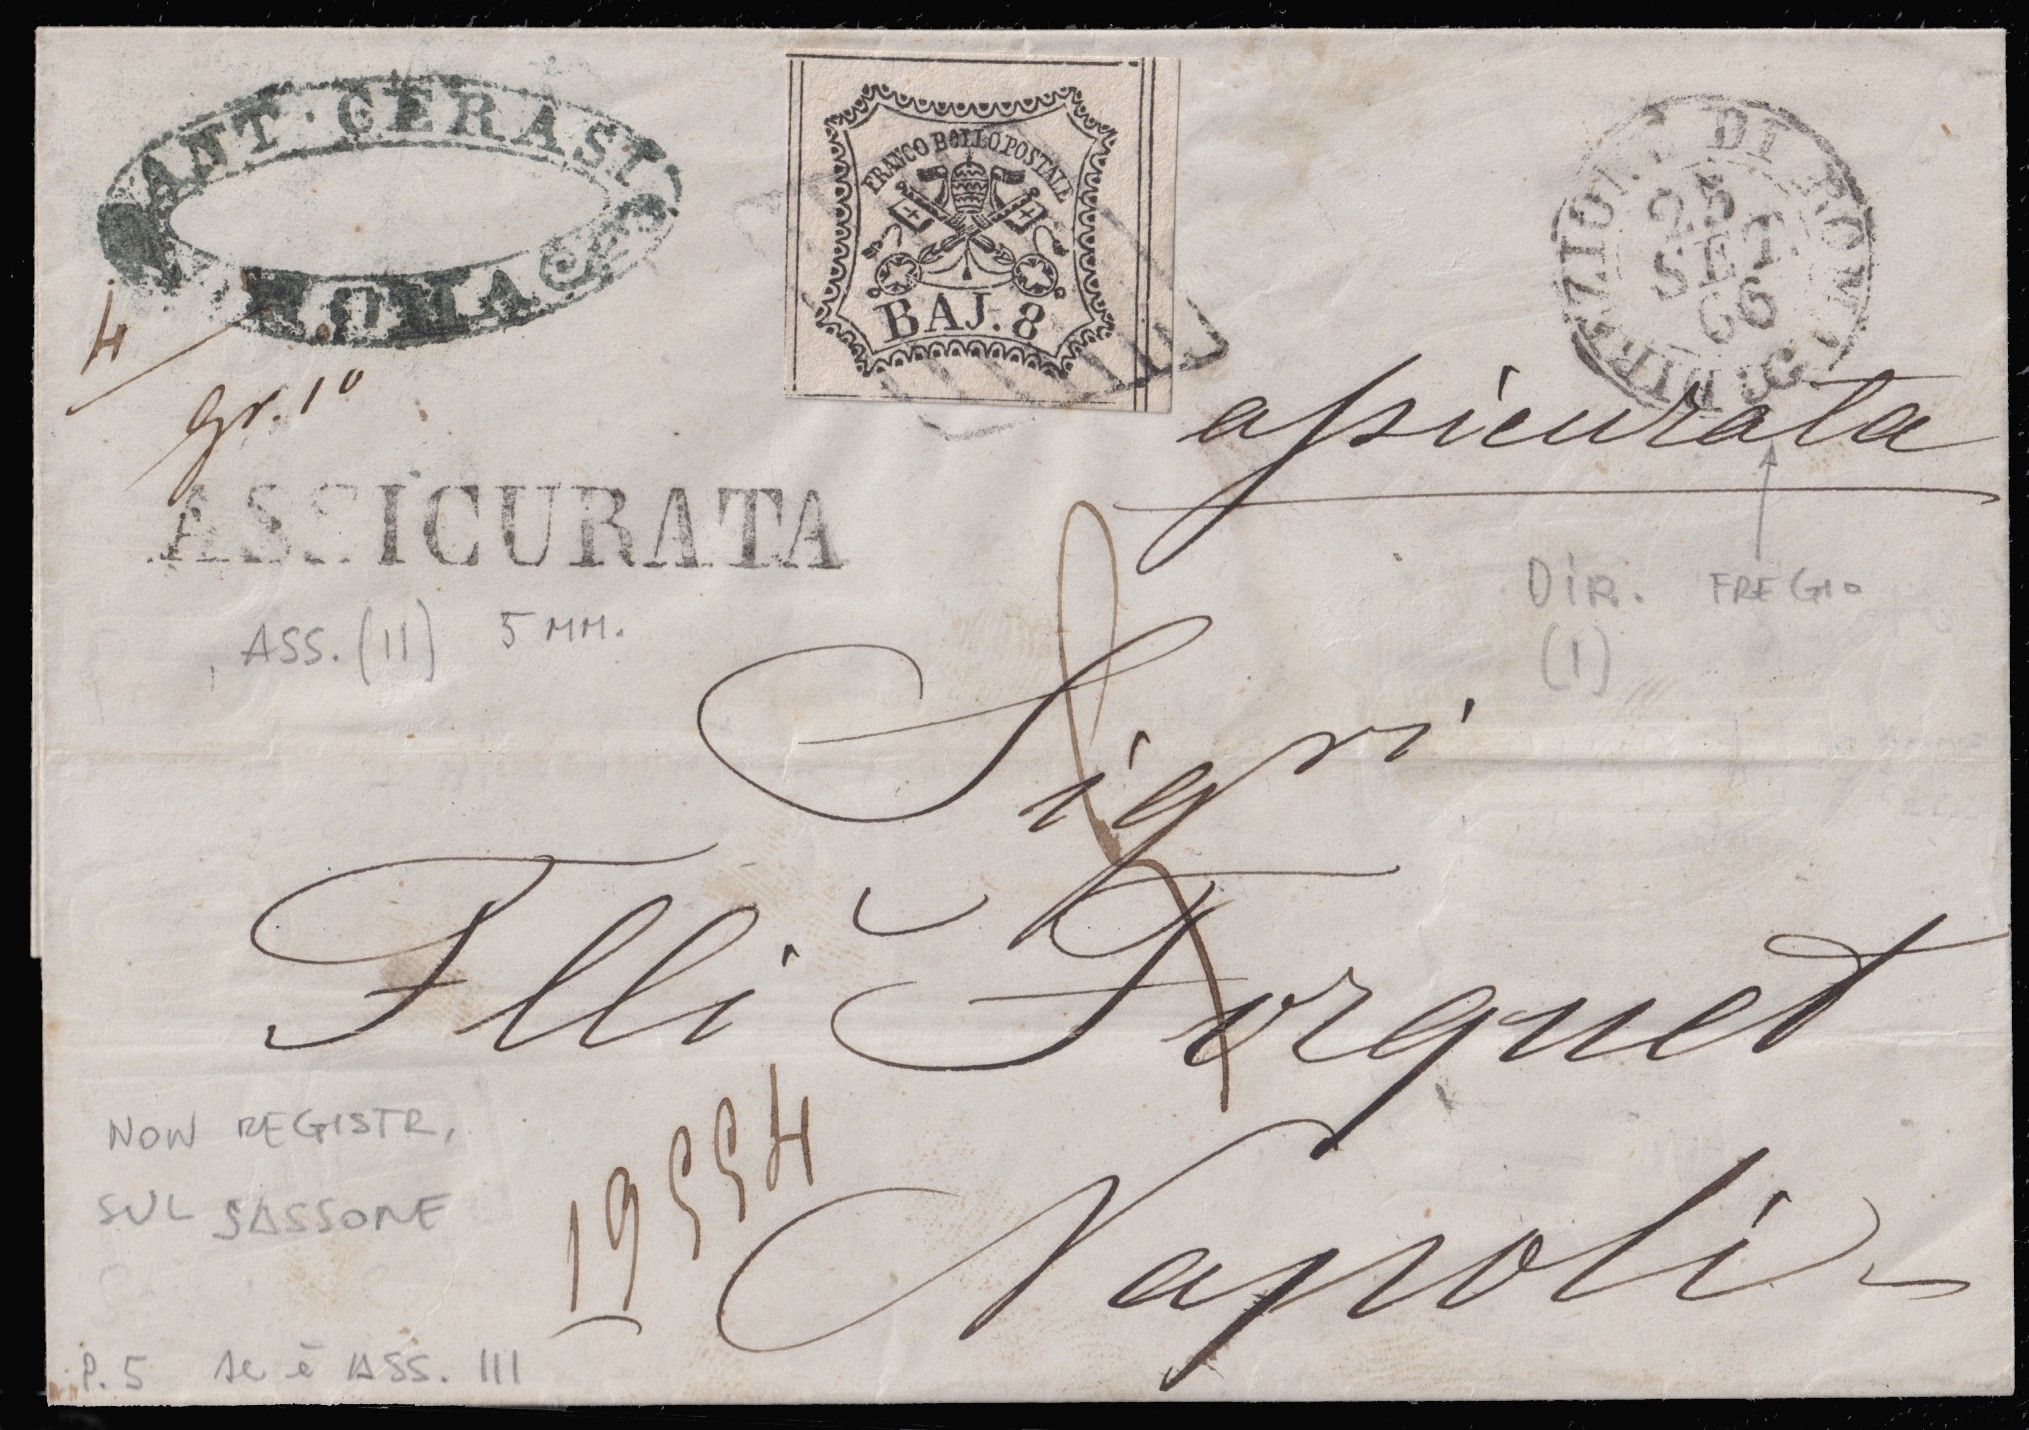 ANT. CERASI
ROMA
FRANCO BOLLO POSTALE
BAJ. 8
DIREZIONE DI ROMA
25
SET.
66
4
gr. 10
assicurata
ASSICURATA
ASS. (II) 5 MM.
DIR. FREGIO
(I)
8
Sigri
Flli Forquet
Napoli
19554
NON REGISTR.
SUL SASSONE
P. 5 se è ASS. III